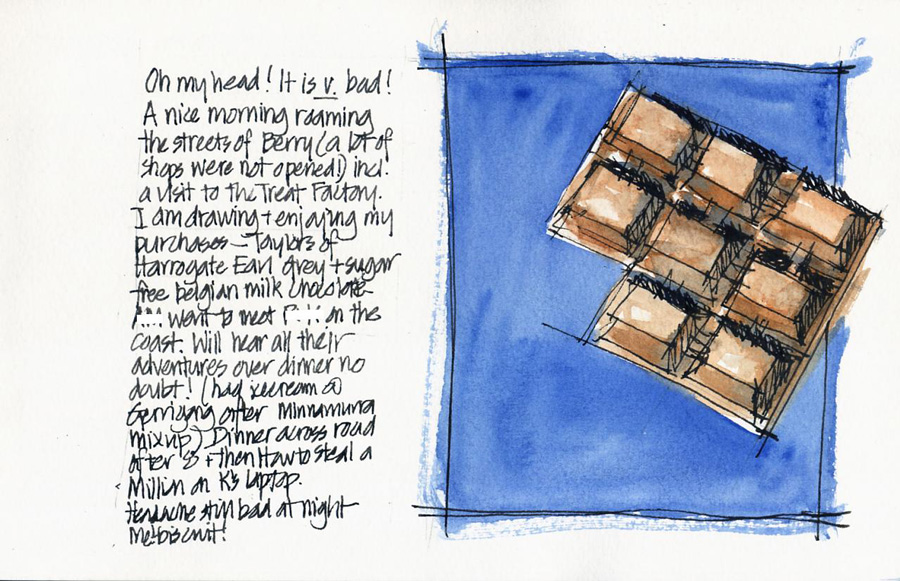 Oh my head! It is v. bad!
A nice morning roaming
the streets of Berry (a lot of
shops were not opened!) incl.
a visit to the Treat Factory.
I am drawing + enjoying my
purchases — Taylors of
Harrogate Earl Grey + sugar
free belgian milk chocolate
went to meet on the
coast. Will hear all their
adventures over dinner no
doubt! (had icecream @
Gerrigong after Minnamurra
mixup) Dinner across road
after + then How to Steal a
Million on K's laptop.
Headache still bad at night